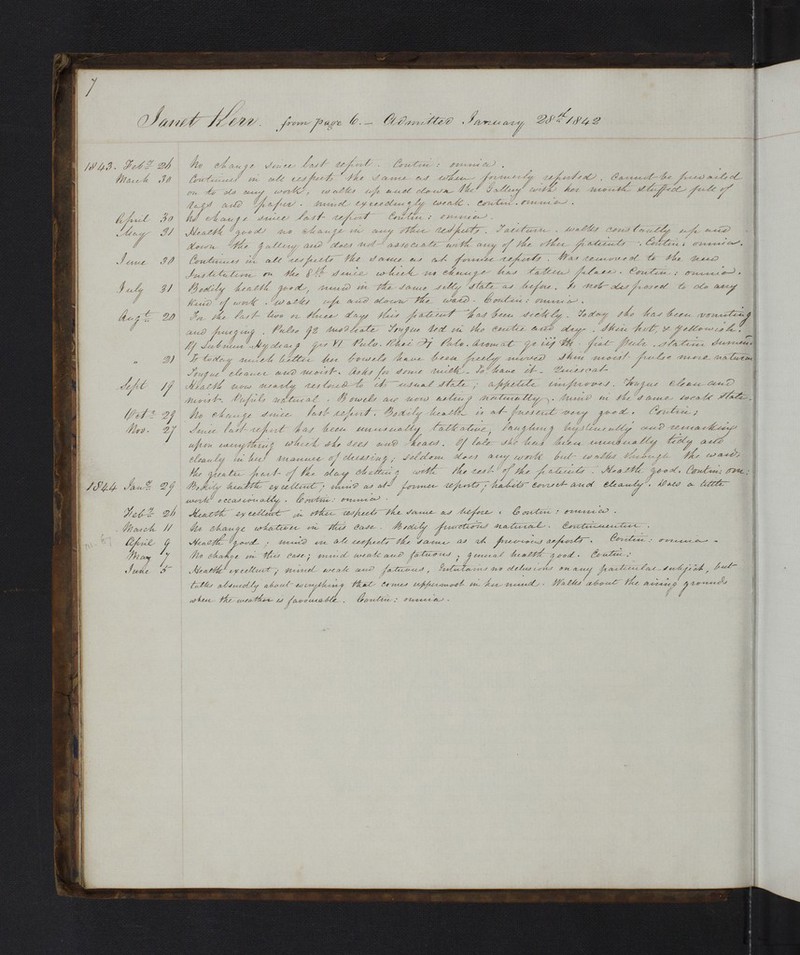 7
Janet Kerr. from page 6.— Admitted January 28th 1842
1843. Feby 26 No change since last report. Contin: omnia.
March 30 Continues in all respects the same as when formerly reported. Cannot be prevailed
on to do any work, walks up and down the Gallery with her mouth stuffed full of
rags and paper. Mind exceedingly weak. Contin: omnia.
April 30 No change since last report. Contin: omnia.
May 31 Health good no change in any other respects. Taciturn. Walks constantly up and
down the gallery and does not associate with any of the other patients. Contin: omnia.
June 30 Continues in all respects the same as at former reports. Was removed to the new
Institution on the 8th since which no change has taken place. Contin: omnia.
July 31 Bodily health good, mind in the same silly state as before. Is not disposed to do any
kind of work. Walks up and down the ward. Contin: omnia.
Augt 20 For the last two or three days this patient has been sickly. Today she has been vomiting
and purging. Pulse 92 moderate Tongue red in the centre and dry. Skin hot, & yellowish.
Submur. Hydrarg grs VI Pulv. Rhei Pulv. Aromat gr iij M. fiat Pulv. statim
" 21 To today much better her bowels have been freely moved skin moist pulse more natural
Tongue cleaner and moist. Asks for some milk. To have it.
Sept 19 Health now nearly restored to its usual state; appetite improves. Tongue clean and
moist. Pupils natural. Bowels are now acting naturally. Mind in the same weak state.
Octr 29 No change since last report. Bodily health is at present very good. Contin:
Nov. 27 Since last report has been unusually talkative, laughing hysterically and remarking
upon everything which she sees and hears. Of late she has been unusually tidy and
cleanly in her manner of dressing; seldom does any work but walks through the wards
the greater part of the day chatting with the rest of the patients. Health good. Contin: om:
1844 Jany 29 Bodily health excellent; mind as at former reports; habits correct and cleanly. Does a little
work occasionally. Contin: omnia.
Feby 26 Health excellent in other respects the same as before. Contin: omnia.
March 11 No change whatever in this case. Bodily functions natural. Continuentur.
April 9 Health good; mind in all respects the same as at previous reports. Contin: omnia.
May 7 No change in this case; mind weak and fatuous; general health good. Contin:
June 5 Health excellent; mind weak and fatuous. Entertains no delusions on any particular subject, but
talks absurdly about everything that comes uppermost in her mind. Walks about the airing grounds
when the weather is favourable. Contin: omnia.